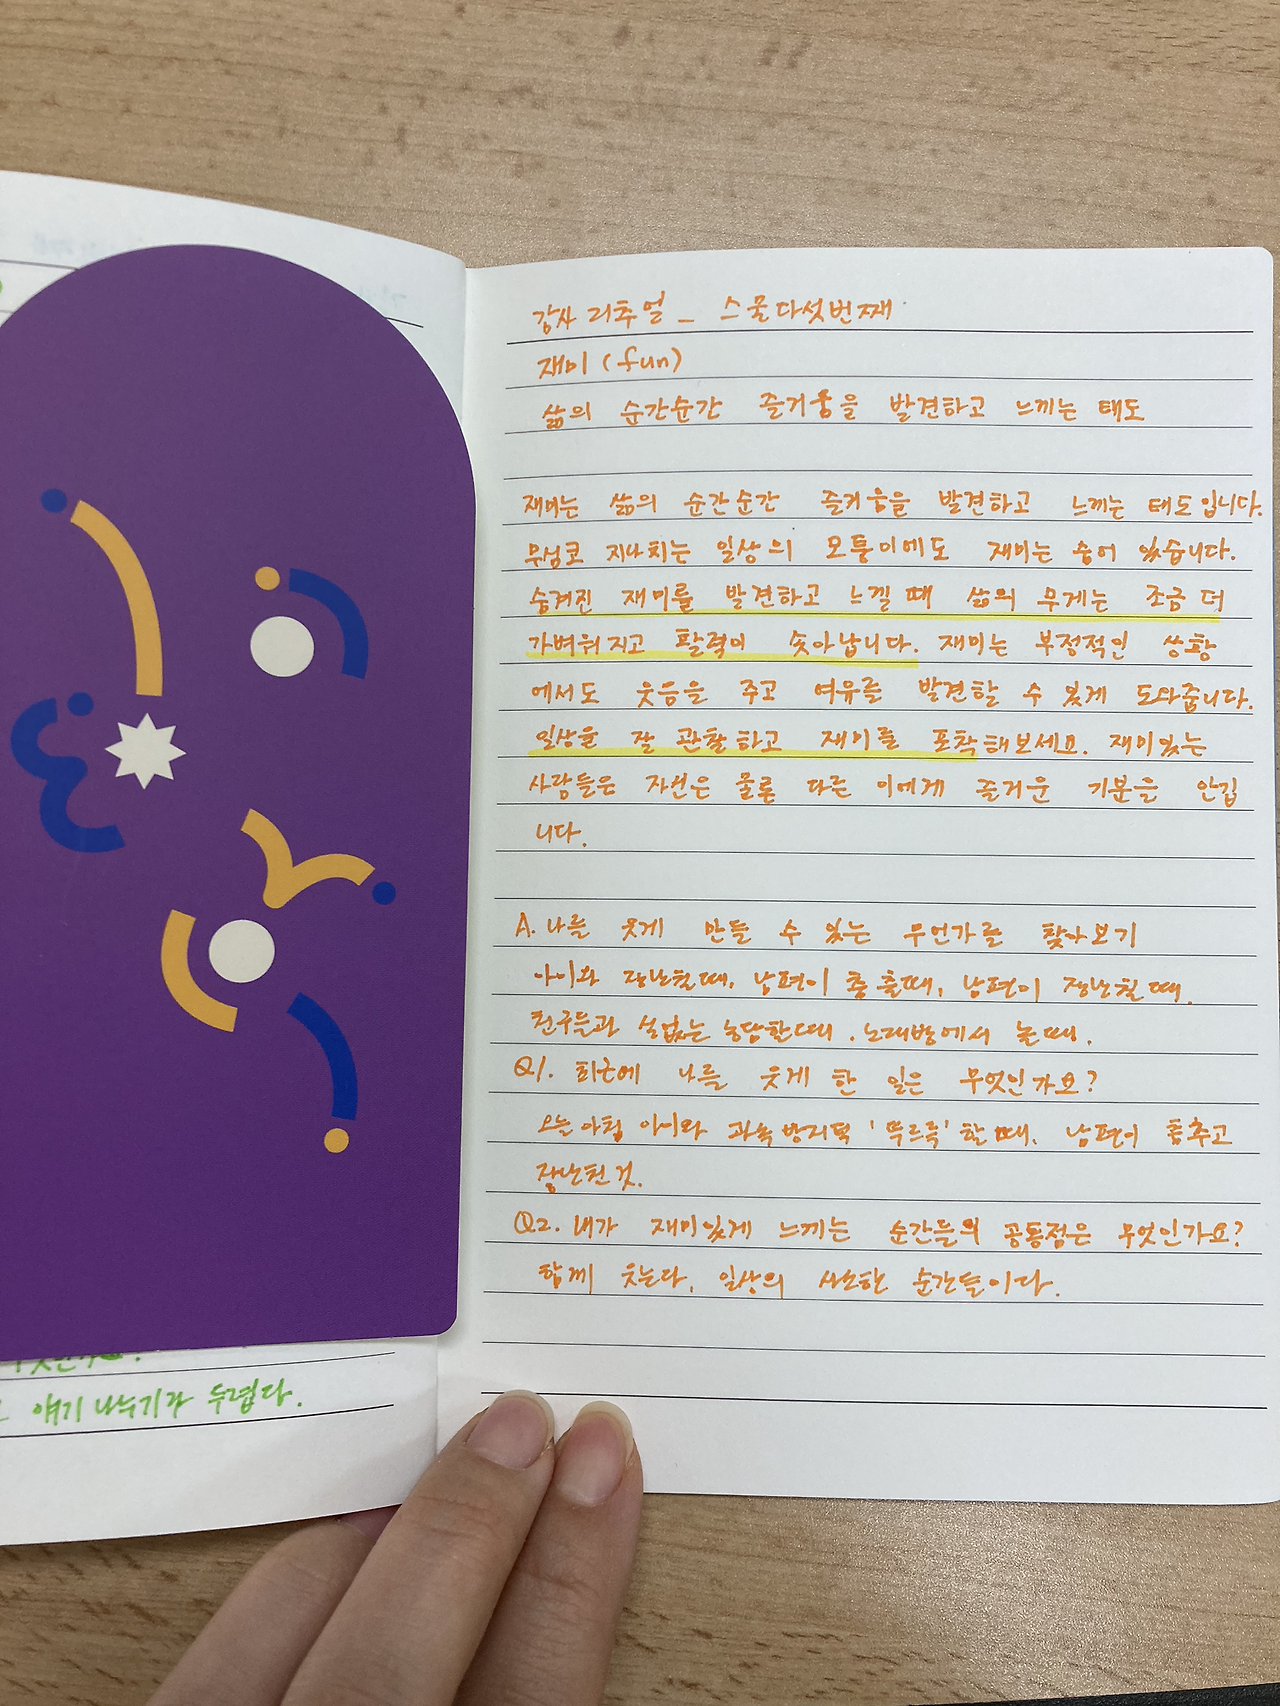 감사 리추얼 _ 스물다섯번째
재미 (fun)
삶의 순간순간 즐거움을 발견하고 느끼는 태도
재미는 삶의 순간순간 즐거움을 발견하고 느끼는 태도입니다.
무심코 지나치는 일상의 모퉁이에도 재미는 숨어 있습니다.
숨겨진 재미를 발견하고 느낄 때 삶의 무게는 조금 더
가벼워지고 활력이 솟아납니다. 재미는 부정적인 상황
에서도 웃음을 주고 여유를 발견할 수 있게 도와줍니다.
일상을 잘 관찰하고 재미를 포착해보세요. 재미있는
사람들은 자신은 물론 다른 이에게 즐거운 기분을 안깁
니다.
A. 나를 웃게 만들 수 있는 무언가를 찾아보기
아이와 장난칠때, 남편이 춤출때, 남편이 장난칠때,
친구들과 실없는 농담할때, 노래방에서 놀때.
Q1. 최근에 나를 웃게 한 일은 무엇인가요?
오늘아침 아이와 과속방지턱 할때. 남편이 춤추고
장난친것.
Q2. 내가 재미있게 느끼는 순간들의 공통점은 무엇인가요?
함께 웃는다, 일상의 사소한 순간들이다.
얘기 나누기가 두렵다.